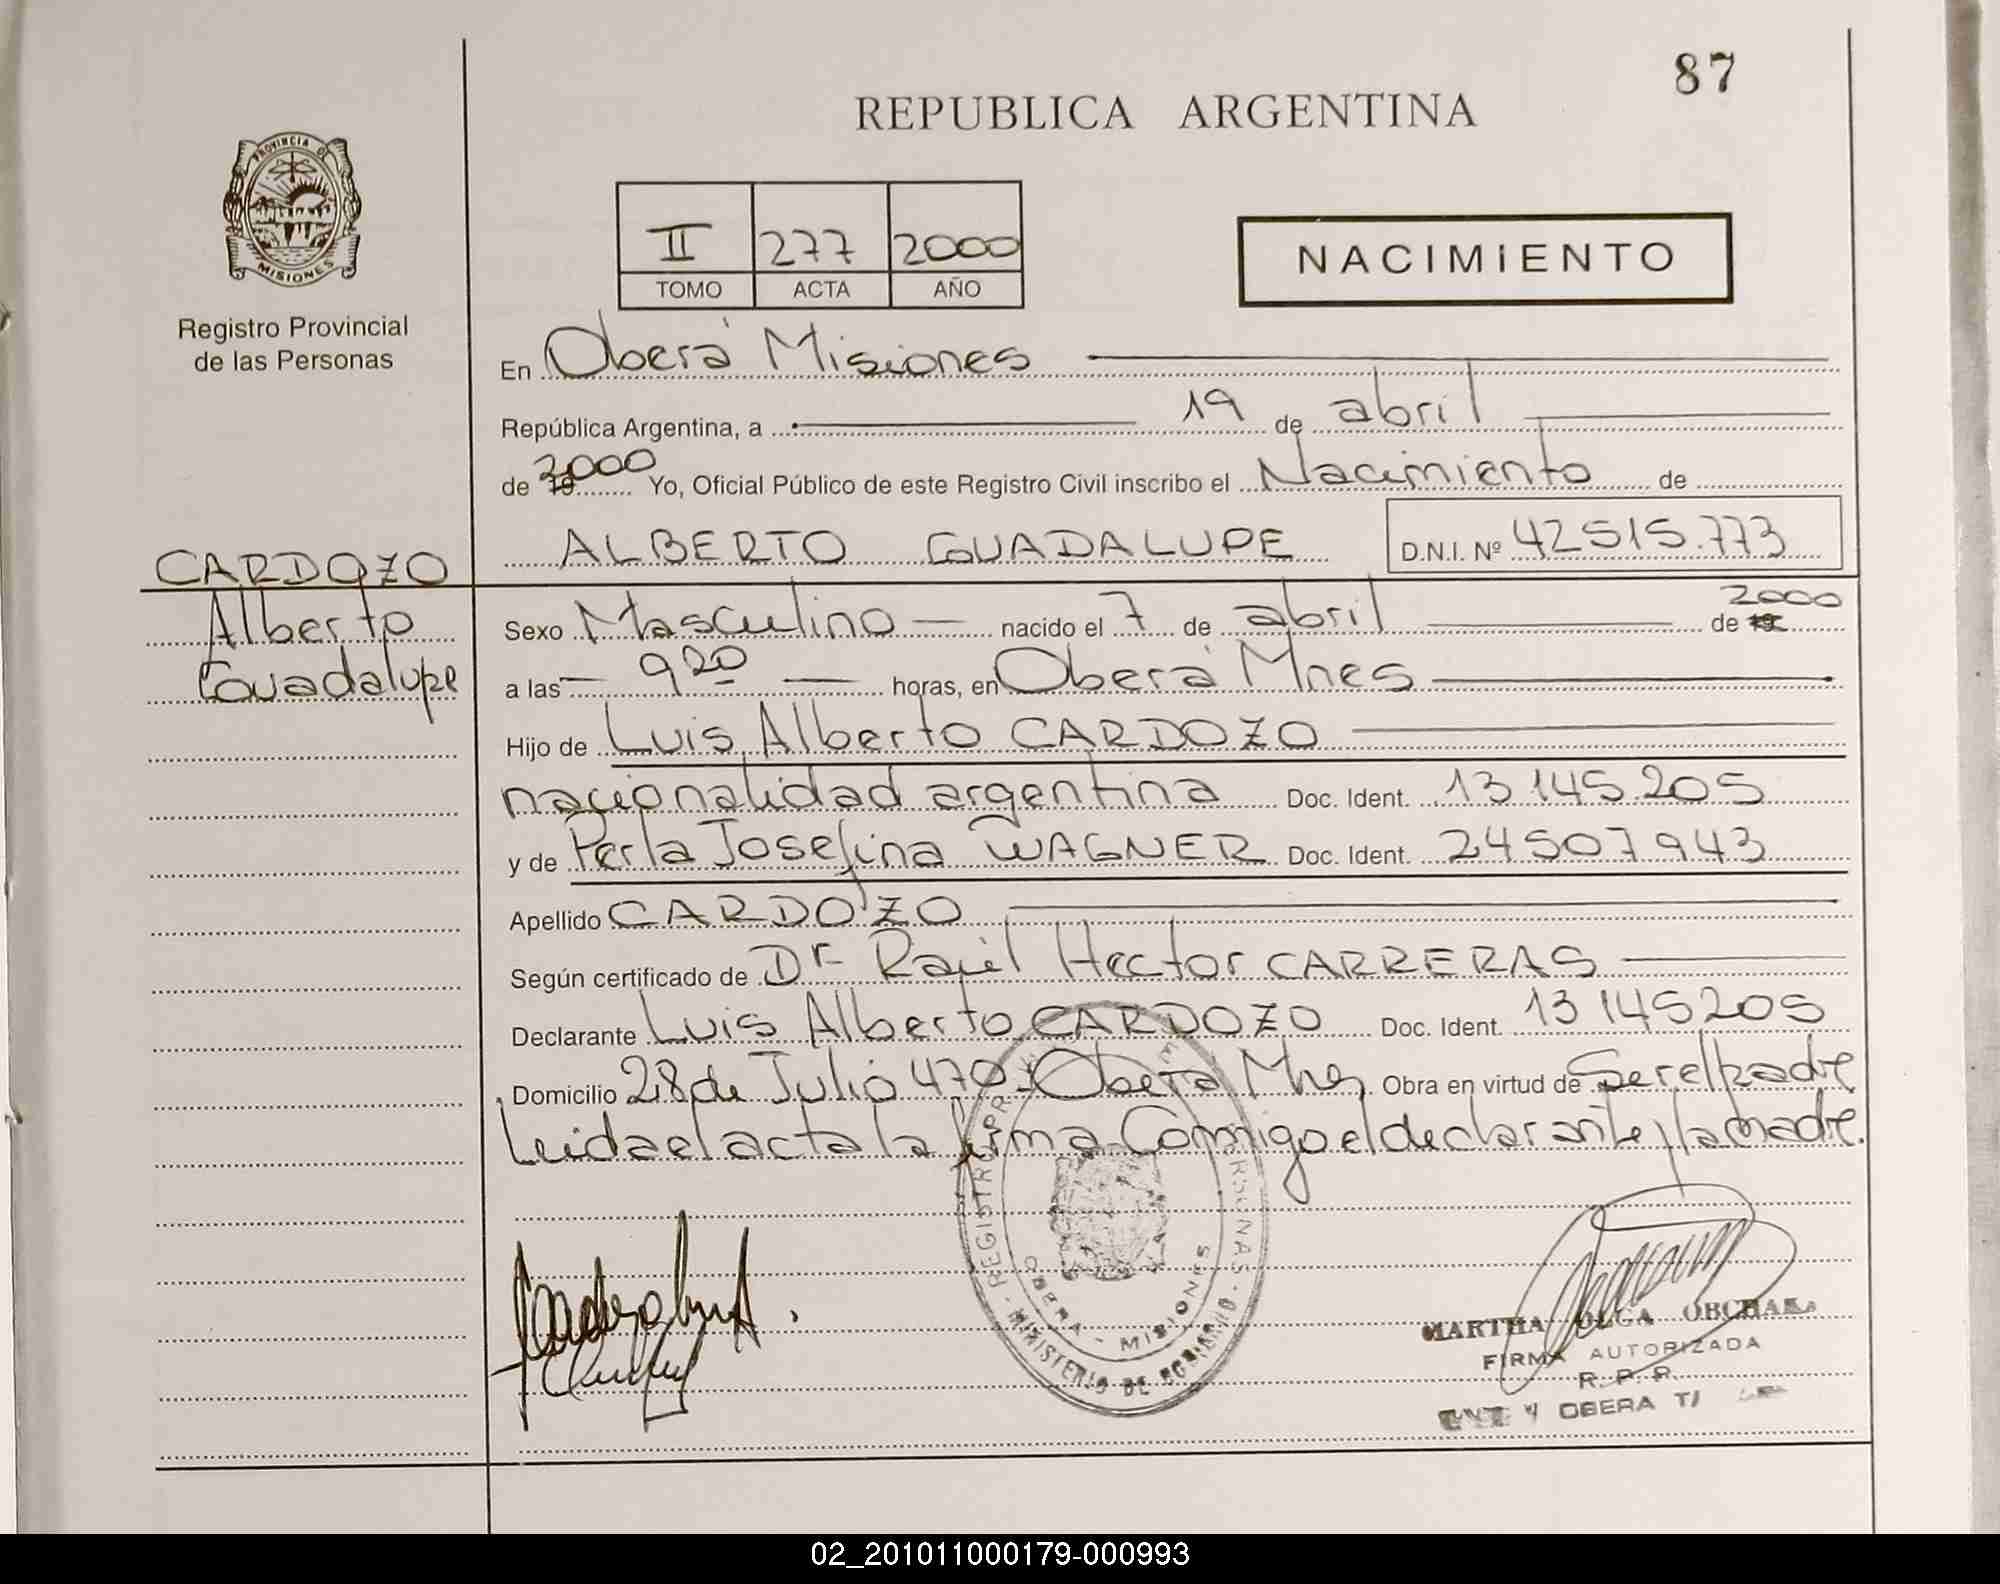 87
REPUBLICA ARGENTINA
PROVINCIA DE
MISIONES
Registro Provincial
de las Personas
II 277 2000
TOMO ACTA AÑO
NACIMIENTO
En Oberá Misiones
República Argentina, a 19 de abril
de 2000 Yo, Oficial Público de este Registro Civil inscribo el Nacimiento de
ALBERTO GUADALUPE D.N.I. Nº 42515.773
CARDOZO
Alberto
Guadalupe
Sexo Masculino nacido el 7 de abril de 2000
a las 9 20 horas, en Oberá Mnes
Hijo de Luis Alberto CARDOZO
nacionalidad argentina Doc. Ident. 13 145.205
y de Perla Josefina WAGNER Doc. Ident. 24507943
Apellido CARDOZO
Según certificado de Dr Raúl Hector CARRERAS
Declarante Luis Alberto CARDOZO Doc. Ident. 13 145205
Domicilio 28 de Julio 470 Oberá Mnes Obra en virtud de Ser el padre
Leida el acta la firma Conmigo el declarante y la madre.
OBERA - MISIONES
MINISTERIO DE
MARTHA OLGA
FIRMA AUTORIZADA
R. P. P.
OBERA
02_201011000179-000993